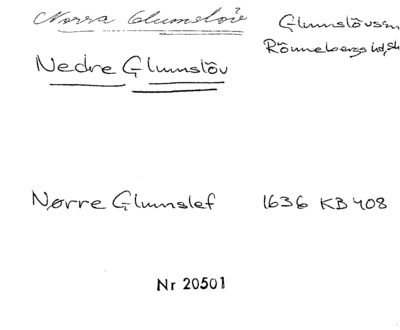 Norra Glumslöv
Glumslövs sn
Rönnebergs hd, Sk
Nedre Glumslöv
Nørre Glumslef 1636 KB 408
Nr 20501